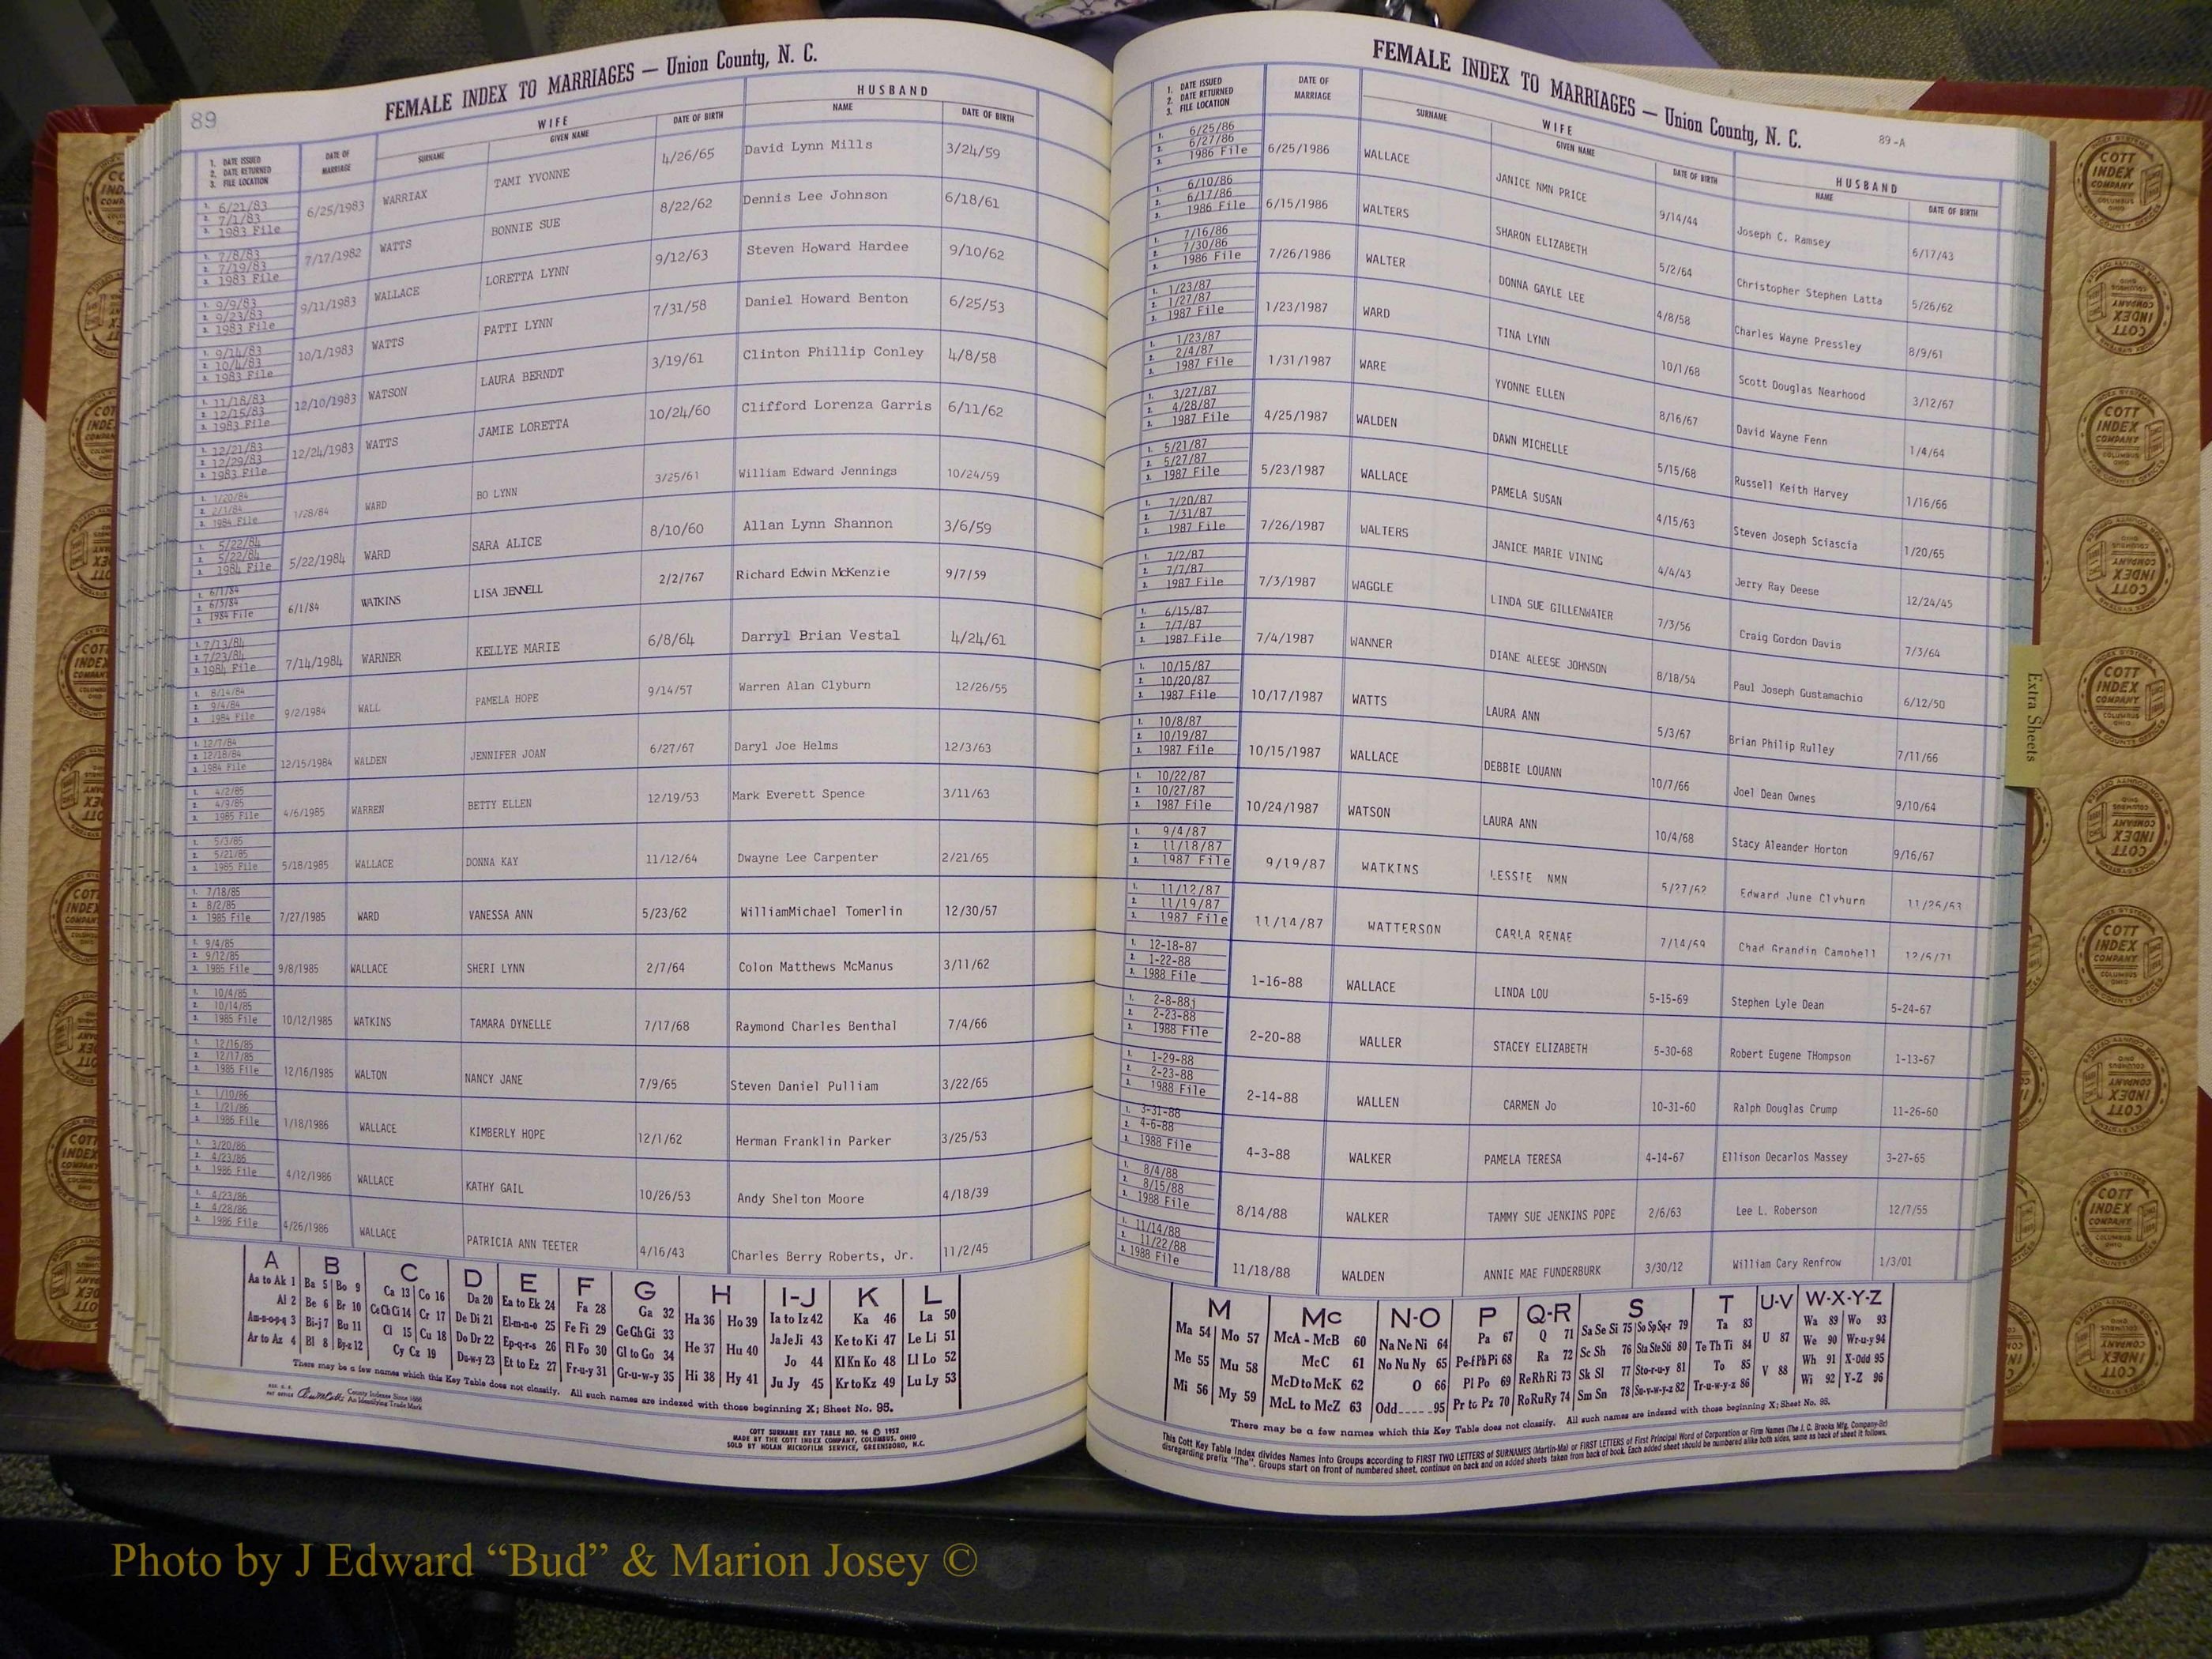 89
FEMALE INDEX TO MARRIAGES — Union County, N. C.
1. DATE ISSUED 2. DATE RETURNED 3. FILE LOCATION
DATE OF MARRIAGE
WIFE
SURNAME GIVEN NAME DATE OF BIRTH
HUSBAND
NAME DATE OF BIRTH
1. 6/21/83 2. 7/1/83 3. 1983 File 6/25/1983 WARRIAX TAMI YVONNE 4/26/65 David Lynn Mills 3/24/59
1. 7/8/83 2. 7/19/83 3. 1983 File 7/17/1982 WATTS BONNIE SUE 8/22/62 Dennis Lee Johnson 6/18/61
1. 9/9/83 2. 9/23/83 3. 1983 File 9/11/1983 WALLACE LORETTA LYNN 9/12/63 Steven Howard Hardee 9/10/62
1. 9/14/83 2. 10/4/83 3. 1983 File 10/1/1983 WATTS PATTI LYNN 7/31/58 Daniel Howard Benton 6/25/53
1. 11/18/83 2. 12/15/83 3. 1983 File 12/10/1983 WATSON LAURA BERNDT 3/19/61 Clinton Phillip Conley 4/8/58
1. 12/21/83 2. 12/29/83 3. 1983 File 12/24/1983 WATTS JAMIE LORETTA 10/24/60 Clifford Lorenza Garris 6/11/62
1. 1/20/84 2. 2/1/84 3. 1984 File 1/28/84 WARD BO LYNN 3/25/61 William Edward Jennings 10/24/59
1. 5/22/84 2. 5/22/84 3. 1984 File 5/22/1984 WARD SARA ALICE 8/10/60 Allan Lynn Shannon 3/6/59
1. 6/1/84 2. 6/5/84 3. 1984 File 6/1/84 WATKINS LISA JENNELL 2/2/767 Richard Edwin McKenzie 9/7/59
1. 7/13/84 2. 7/23/84 3. 1984 File 7/14/1984 WARNER KELLYE MARIE 6/8/64 Darryl Brian Vestal 4/24/61
1. 8/14/84 2. 9/4/84 3. 1984 File 9/2/1984 WALL PAMELA HOPE 9/14/57 Warren Alan Clyburn 12/26/55
1. 12/7/84 2. 12/18/84 3. 1984 File 12/15/1984 WALDEN JENNIFER JOAN 6/27/67 Daryl Joe Helms 12/3/63
1. 4/2/85 2. 4/9/85 3. 1985 File 4/6/1985 WARREN BETTY ELLEN 12/19/53 Mark Everett Spence 3/11/63
1. 5/3/85 2. 5/21/85 3. 1985 File 5/18/1985 WALLACE DONNA KAY 11/12/64 Dwayne Lee Carpenter 2/21/65
1. 7/18/85 2. 8/2/85 3. 1985 File 7/27/1985 WARD VANESSA ANN 5/23/62 WilliamMichael Tomerlin 12/30/57
1. 9/4/85 2. 9/12/85 3. 1985 File 9/8/1985 WALLACE SHERI LYNN 2/7/64 Colon Matthews McManus 3/11/62
1. 10/4/85 2. 10/14/85 3. 1985 File 10/12/1985 WATKINS TAMARA DYNELLE 7/17/68 Raymond Charles Benthal 7/4/66
1. 12/16/85 2. 12/17/85 3. 1985 File 12/16/1985 WALTON NANCY JANE 7/9/65 Steven Daniel Pulliam 3/22/65
1. 1/10/86 2. 1/21/86 3. 1986 File 1/18/1986 WALLACE KIMBERLY HOPE 12/1/62 Herman Franklin Parker 3/25/53
1. 3/20/86 2. 4/23/86 3. 1986 File 4/12/1986 WALLACE KATHY GAIL 10/26/53 Andy Shelton Moore 4/18/39
1. 4/23/86 2. 4/28/86 3. 1986 File 4/26/1986 WALLACE PATRICIA ANN TEETER 4/16/43 Charles Berry Roberts, Jr. 11/2/45
A B C D E F G H I-J K L
Aa to Ak 1 Ba 5 Bo 9 Ca 13 Co 16 Da 20 Ea to Ek 24 Fa 28 Ga 32 Ha 36 Ho 39 Ia to Iz 42 Ka 46 La 50
Al 2 Be 6 Br 10 Ce Ch Ci 14 Cr 17 De Di 21 El-m-n-o 25 Fe Fi 29 Ge Gh Gi 33 He 37 Hu 40 Ja Je Ji 43 Ke to Ki 47 Le Li 51
Am-n-o-p-q 3 Bi-j 7 Bu 11 Cl 15 Cu 18 Do Dr 22 Ep-q-r-s 26 Fl Fo 30 Gl to Go 34 Hi 38 Hy 41 Jo 44 Kl Kn Ko 48 Ll Lo 52
Ar to Az 4 Bl 8 By-z 12 Cy Cz 19 Du-w-y 23 Et to Ez 27 Fr-u-y 31 Gr-u-w-y 35 Ju Jy 45 Kr to Kz 49 Lu Ly 53
There may be a few names which this Key Table does not classify. All such names are indexed with those beginning X; Sheet No. 95.
County Indexes Since 1888
An Identifying Trade Mark
COTT SURNAME KEY TABLE NO. 96 © 1952
MADE BY THE COTT INDEX COMPANY, COLUMBUS, OHIO
SOLD BY NOLAN MICROFILM SERVICE, GREENSBORO, N.C.
FEMALE INDEX TO MARRIAGES — Union County, N. C.
89-A
1. DATE ISSUED 2. DATE RETURNED 3. FILE LOCATION
DATE OF MARRIAGE
WIFE
SURNAME GIVEN NAME DATE OF BIRTH
HUSBAND
NAME DATE OF BIRTH
1. 6/25/86 2. 6/27/86 3. 1986 File 6/25/1986 WALLACE JANICE NMN PRICE 9/14/44 Joseph C. Ramsey 6/17/43
1. 6/10/86 2. 6/17/86 3. 1986 File 6/15/1986 WALTERS SHARON ELIZABETH 5/2/64 Christopher Stephen Latta 5/26/62
1. 7/16/86 2. 7/30/86 3. 1986 File 7/26/1986 WALTER DONNA GAYLE LEE 4/8/58 Charles Wayne Pressley 8/9/61
1. 1/23/87 2. 1/27/87 3. 1987 File 1/23/1987 WARD TINA LYNN 10/1/68 Scott Douglas Nearhood 3/12/67
1. 1/23/87 2. 2/4/87 3. 1987 File 1/31/1987 WARE YVONNE ELLEN 8/16/67 David Wayne Fenn 1/4/64
1. 3/27/87 2. 4/28/87 3. 1987 File 4/25/1987 WALDEN DAWN MICHELLE 5/15/68 Russell Keith Harvey 1/16/66
1. 5/21/87 2. 5/27/87 3. 1987 File 5/23/1987 WALLACE PAMELA SUSAN 4/15/63 Steven Joseph Sciascia 1/20/65
1. 7/20/87 2. 7/31/87 3. 1987 File 7/26/1987 WALTERS JANICE MARIE VINING 4/4/43 Jerry Ray Deese 12/24/45
1. 7/2/87 2. 7/7/87 3. 1987 File 7/3/1987 WAGGLE LINDA SUE GILLENWATER 7/3/56 Craig Gordon Davis 7/3/64
1. 6/15/87 2. 7/7/87 3. 1987 File 7/4/1987 WANNER DIANE ALEESE JOHNSON 8/18/54 Paul Joseph Gustamachio 6/12/50
1. 10/15/87 2. 10/20/87 3. 1987 File 10/17/1987 WATTS LAURA ANN 5/3/67 Brian Philip Rulley 7/11/66
1. 10/8/87 2. 10/19/87 3. 1987 File 10/15/1987 WALLACE DEBBIE LOUANN 10/7/66 Joel Dean Ownes 9/10/64
1. 10/22/87 2. 10/27/87 3. 1987 File 10/24/1987 WATSON LAURA ANN 10/4/68 Stacy Aleander Horton 9/16/67
1. 9/4/87 2. 11/18/87 3. 1987 File 9/19/87 WATKINS LESSIE NMN 5/27/62 Edward June Clyburn 11/26/63
1. 11/12/87 2. 11/19/87 3. 1987 File 11/14/87 WATTERSON CARLA RENAE 7/14/69 Chad Grandin Campbell 12/5/71
1. 12-18-87 2. 1-22-88 3. 1988 File 1-16-88 WALLACE LINDA LOU 5-15-69 Stephen Lyle Dean 5-24-67
1. 2-8-88j 2. 2-23-88 3. 1988 File 2-20-88 WALLER STACEY ELIZABETH 5-30-68 Robert Eugene THompson 1-13-67
1. 1-29-88 2. 2-23-88 3. 1988 File 2-14-88 WALLEN CARMEN Jo 10-31-60 Ralph Douglas Crump 11-26-60
1. 3-31-88 2. 4-6-88 3. 1988 File 4-3-88 WALKER PAMELA TERESA 4-14-67 Ellison Decarlos Massey 3-27-65
1. 8/4/88 2. 8/15/88 3. 1988 File 8/14/88 WALKER TAMMY SUE JENKINS POPE 2/6/63 Lee L. Roberson 12/7/55
1. 11/14/88 2. 11/22/88 3. 1988 File 11/18/88 WALDEN ANNIE MAE FUNDERBURK 3/30/12 William Cary Renfrow 1/3/01
M Mc N-O P Q-R S T U-V W-X-Y-Z
Ma 54 Mo 57 McA - McB 60 Na Ne Ni 64 Pa 67 Q 71 Sa Se Si 75 So Sp Sq-r 79 Ta 83 U 87 Wa 89 Wo 93
Me 55 Mu 58 McC 61 No Nu Ny 65 Pe-f Ph Pi 68 Ra 72 Sc Sh 76 Sta Ste Sti 80 Te Th Ti 84 V 88 We 90 Wr-u-y 94
Mi 56 My 59 McD to McK 62 O 66 Pl Po 69 Re Rh Ri 73 Sk Sl 77 Sto-r-u-y 81 To 85 Wh 91 X-Odd 95
McL to McZ 63 Odd 95 Pr to Pz 70 Ro Ru Ry 74 Sm Sn 78 Su-v-w-y-z 82 Tr-u-w-y-z 86 Wi 92 Y-Z 96
There may be a few names which this Key Table does not classify. All such names are indexed with those beginning X; Sheet No. 95.
This Cott Key Table Index divides Names into Groups according to FIRST TWO LETTERS of SURNAMES (Martin-Ma) or FIRST LETTERS of First Principal Word of Corporation or Firm Names (The J. C. Brooks Mfg. Company-Br)
disregarding prefix "The". Groups start on front of numbered sheet, continue on back and on added sheets taken from back of book. Each added sheet should be numbered alike both sides, same as back of sheet it follows.
Extra Sheets
COTT INDEX COMPANY COLUMBUS OHIO
INDEX SYSTEMS FOR COUNTY OFFICES
Photo by J Edward “Bud” & Marion Josey ©